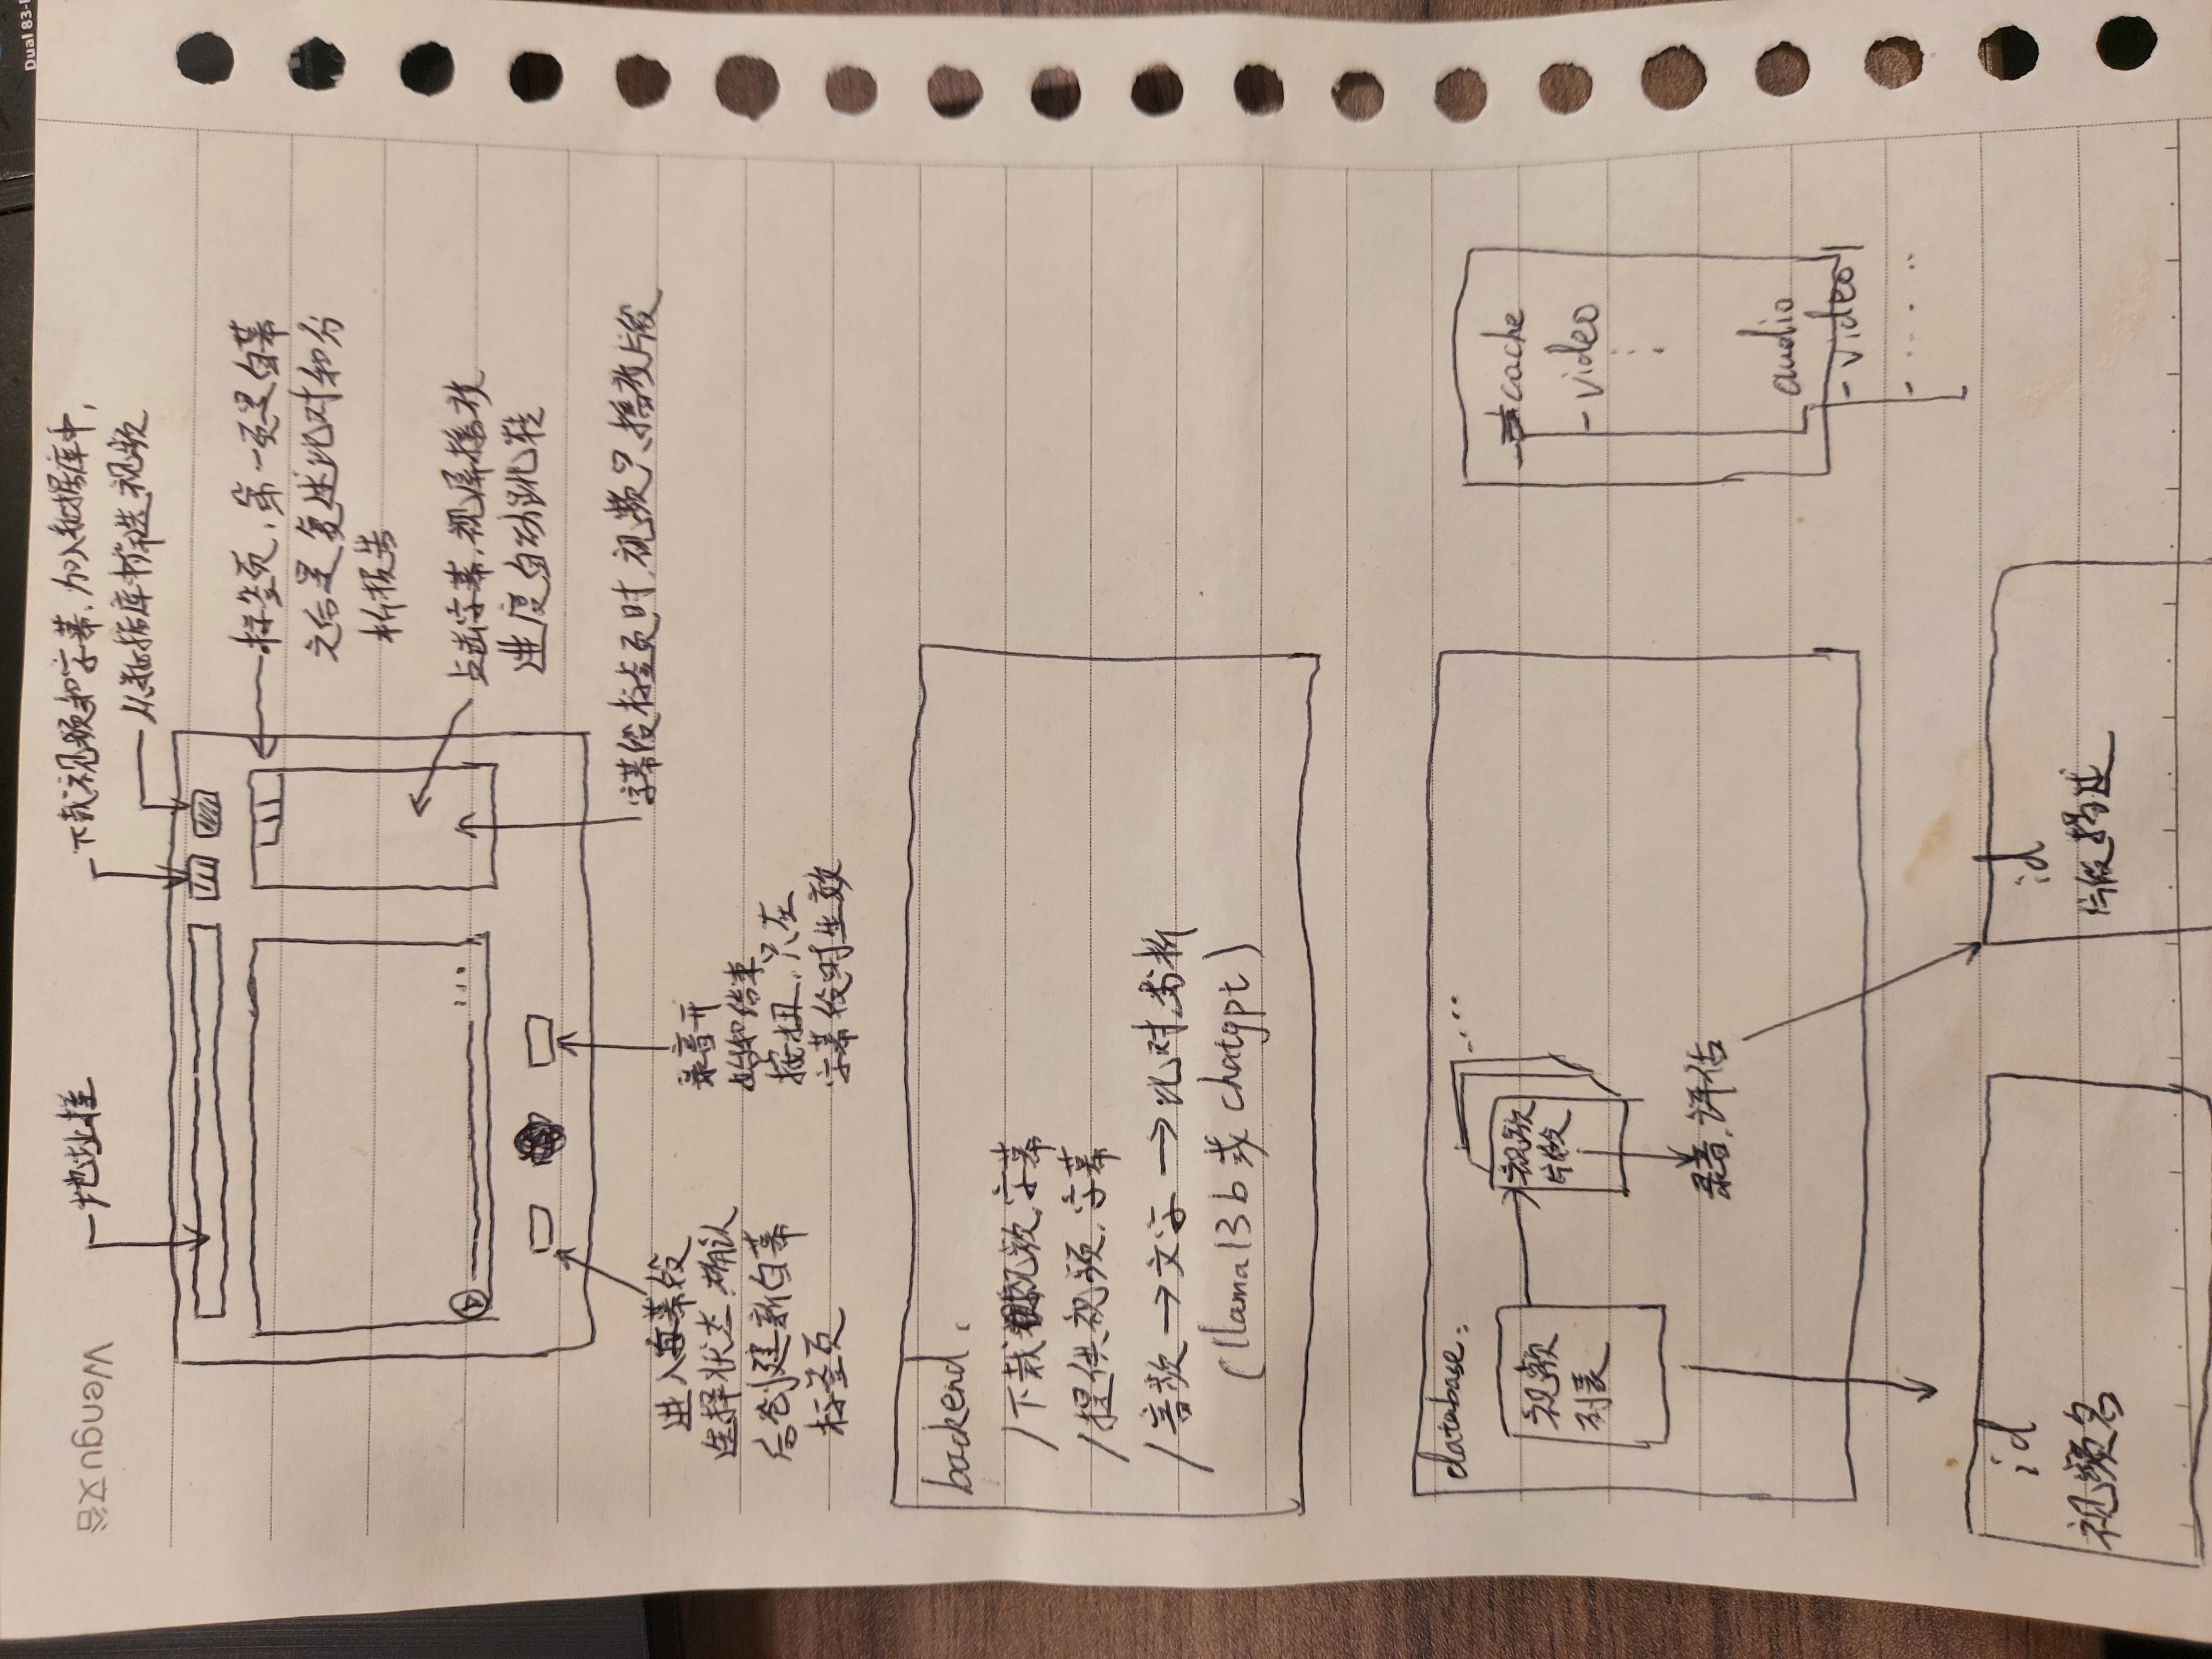 Dual 83-
Wengu文谷
地址栏
下载视频和字幕,加入数据库中,
从数据库中筛选视频
标签页,第一页是白幕
之后是复述比对和分
析报告
点击字幕,视屏播放
进度自动跳转
字幕段标签页时,视频只播放片段
进入白幕段
选择状态,确认
后创建新白幕
标签页
录音开
始和结束
按扭,只在
字幕段时生效
backend:
/下载视频,字幕
/提供视频,字幕
/音频→文字→比对,分析
(llama13b或chatgpt)
database:
视频
列表
视频
片段
....
录音,评估
cache
-video
audio
-video1
- .....
id
视频名
id
片段描述